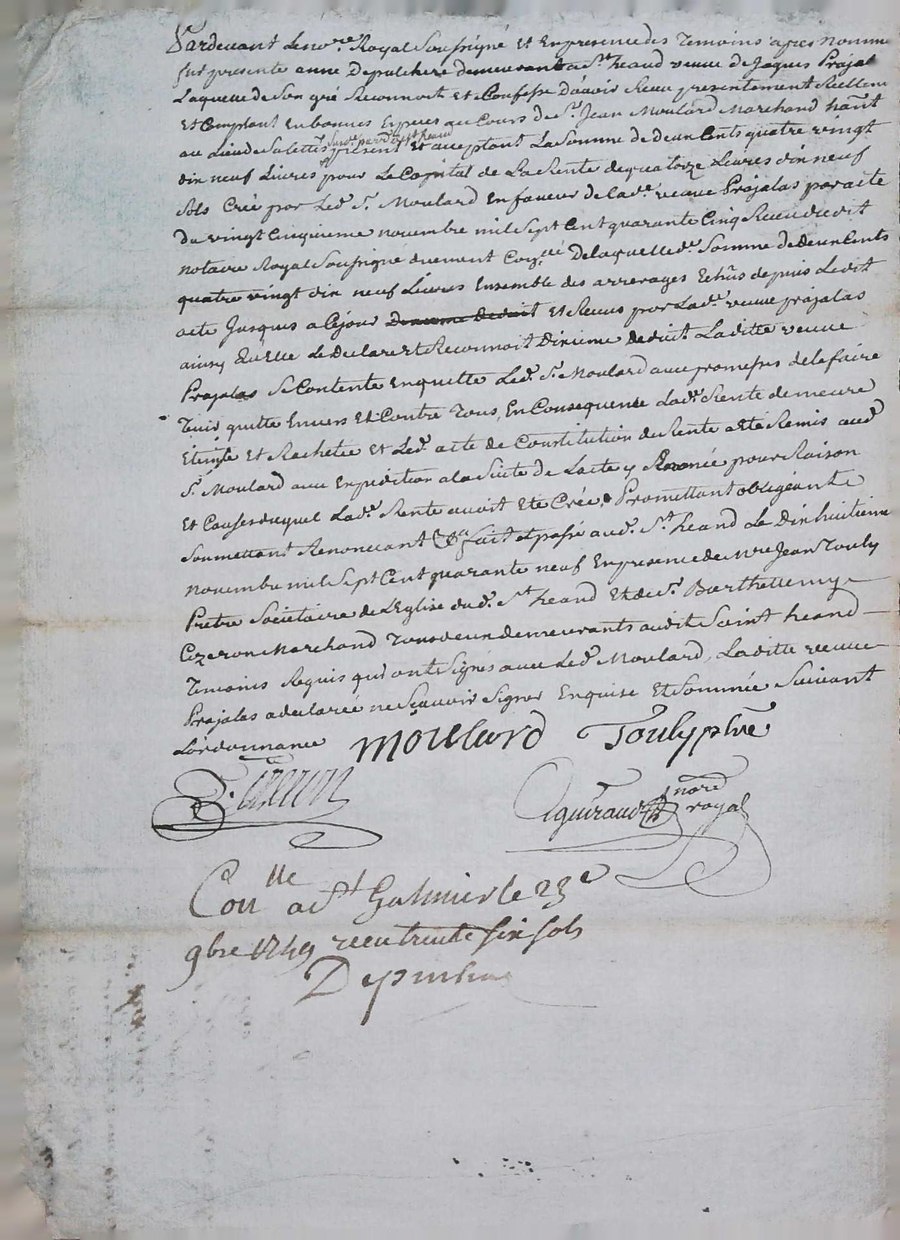 Pardevant Le no.re Royal Soussigné Et En presence des Temoins apres Nommés
fut presente anne Depulchere demeurant a St. heand veuve de Jaques Prajalas
Laquelle de Son gré Reconnoit Et Confesse D'avoir Receu presentement Reellem.
Et Comptant En bonnes Especes au Cours de Sr. Jean Moulard Marchand hant
au Lieu de present Et acceptant La Somme de deux Cents quatre vingt
dix neuf Livres pour Le Capital de La Rente de quatorze Livres dix neuf
Sols Crée par Led. Sr. Moulard En faveur de lad.e veuve Prajalas par acte
Du vingt Cinquieme novembre mil Sept Cent quarante Cinq Receu dudit
notaire Royal Soussigné duement De laquelle d.e Somme de deux Cents
quatre vingt dix neuf Livres Ensemble des arrerages Echûs depuis Ledit
acte Jusques a Cejour Dixieme deduit Et Receus por Lad.e veuve prajalas
ainsy qu'Elle Le declare Et Reconnoit Dixieme deduit Laditte veuve
Prajalas Se Contente En quitte Led. Sr. Moulard avec promesses de le faire
Tenir quitte Envers Et Contre Tous, En Consequence Lad.e Rente demeure
Eteinte Et Rachetée Et Led. acte de Constitution de Rente a Eté Remis aud.
Sr. Moulard avec Expedition a la Suite de L'acte y Enoncée pour Raison
Et Causes duquel Lad.e Rente avoit Eté Crée. Promettant obligeant
Soumettant Renoncant &c fait et passé aud. St. heand Le Dixhuitieme
novembre mil Sept Cent quarante neuf En presence de Mre Jean Touly
Pretre Societaire de L'Eglise dud. St. heand Et de Sr. Barthellemy
Cizeron Marchand Tous deux demeurants audit Saint heand
Temoins Requis qui ont Signés avec Led. Moulard, Laditte veuve
Prajalas a declaree ne Scavoir Signer Enquise Et Sommée Suivant
L'ordonnance Moulard Touly ptre
Cizeron Aguiraud nore royal
Con.lle a St. Galmier le 23e
9bre 1749 receu trente six sols